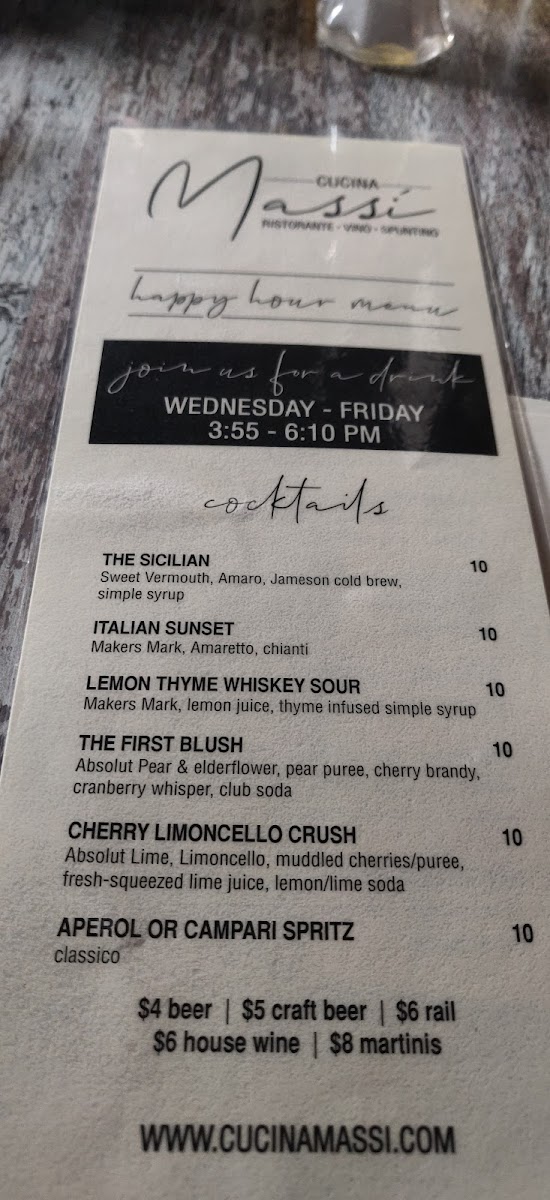 CUCINA
Massí
RISTORANTE • VINO • SPUNTINO
happy hour menu
join us for a drink
WEDNESDAY - FRIDAY
3:55 - 6:10 PM
cocktails
THE SICILIAN 10
Sweet Vermouth, Amaro, Jameson cold brew,
simple syrup
ITALIAN SUNSET 10
Makers Mark, Amaretto, chianti
LEMON THYME WHISKEY SOUR 10
Makers Mark, lemon juice, thyme infused simple syrup
THE FIRST BLUSH 10
Absolut Pear & elderflower, pear puree, cherry brandy,
cranberry whisper, club soda
CHERRY LIMONCELLO CRUSH 10
Absolut Lime, Limoncello, muddled cherries/puree,
fresh-squeezed lime juice, lemon/lime soda
APEROL OR CAMPARI SPRITZ 10
classico
$4 beer | $5 craft beer | $6 rail
$6 house wine | $8 martinis
WWW.CUCINAMASSI.COM